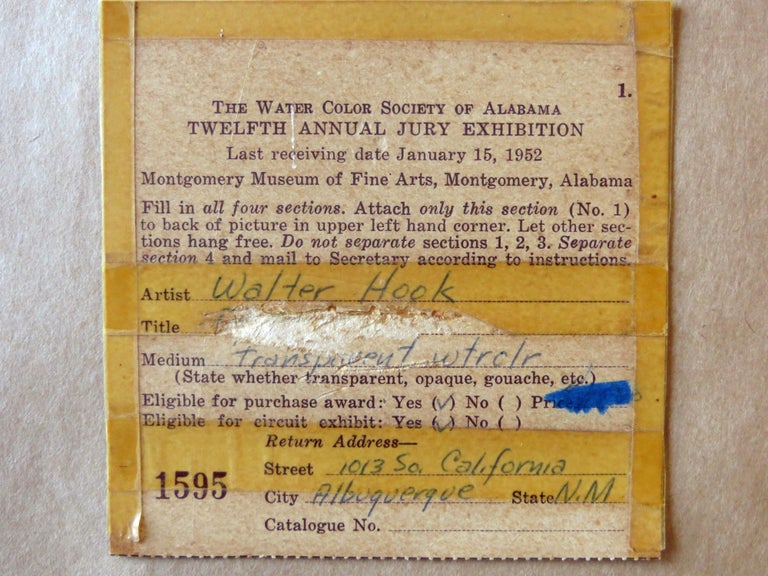 1.
THE WATER COLOR SOCIETY OF ALABAMA
TWELFTH ANNUAL JURY EXHIBITION
Last receiving date January 15, 1952
Montgomery Museum of Fine Arts, Montgomery, Alabama
Fill in all four sections. Attach only this section (No. 1)
to back of picture in upper left hand corner. Let other sec-
tions hang free. Do not separate sections 1, 2, 3. Separate
section 4 and mail to Secretary according to instructions.
Artist Walter Hook
Title
Medium transparent wtrclr
(State whether transparent, opaque, gouache, etc.)
Eligible for purchase award: Yes (✓) No ( )
Eligible for circuit exhibit: Yes (✓) No ( )
Return Address—
Street 1013 So. California
1595 City Albuquerque State N.M
Catalogue No.